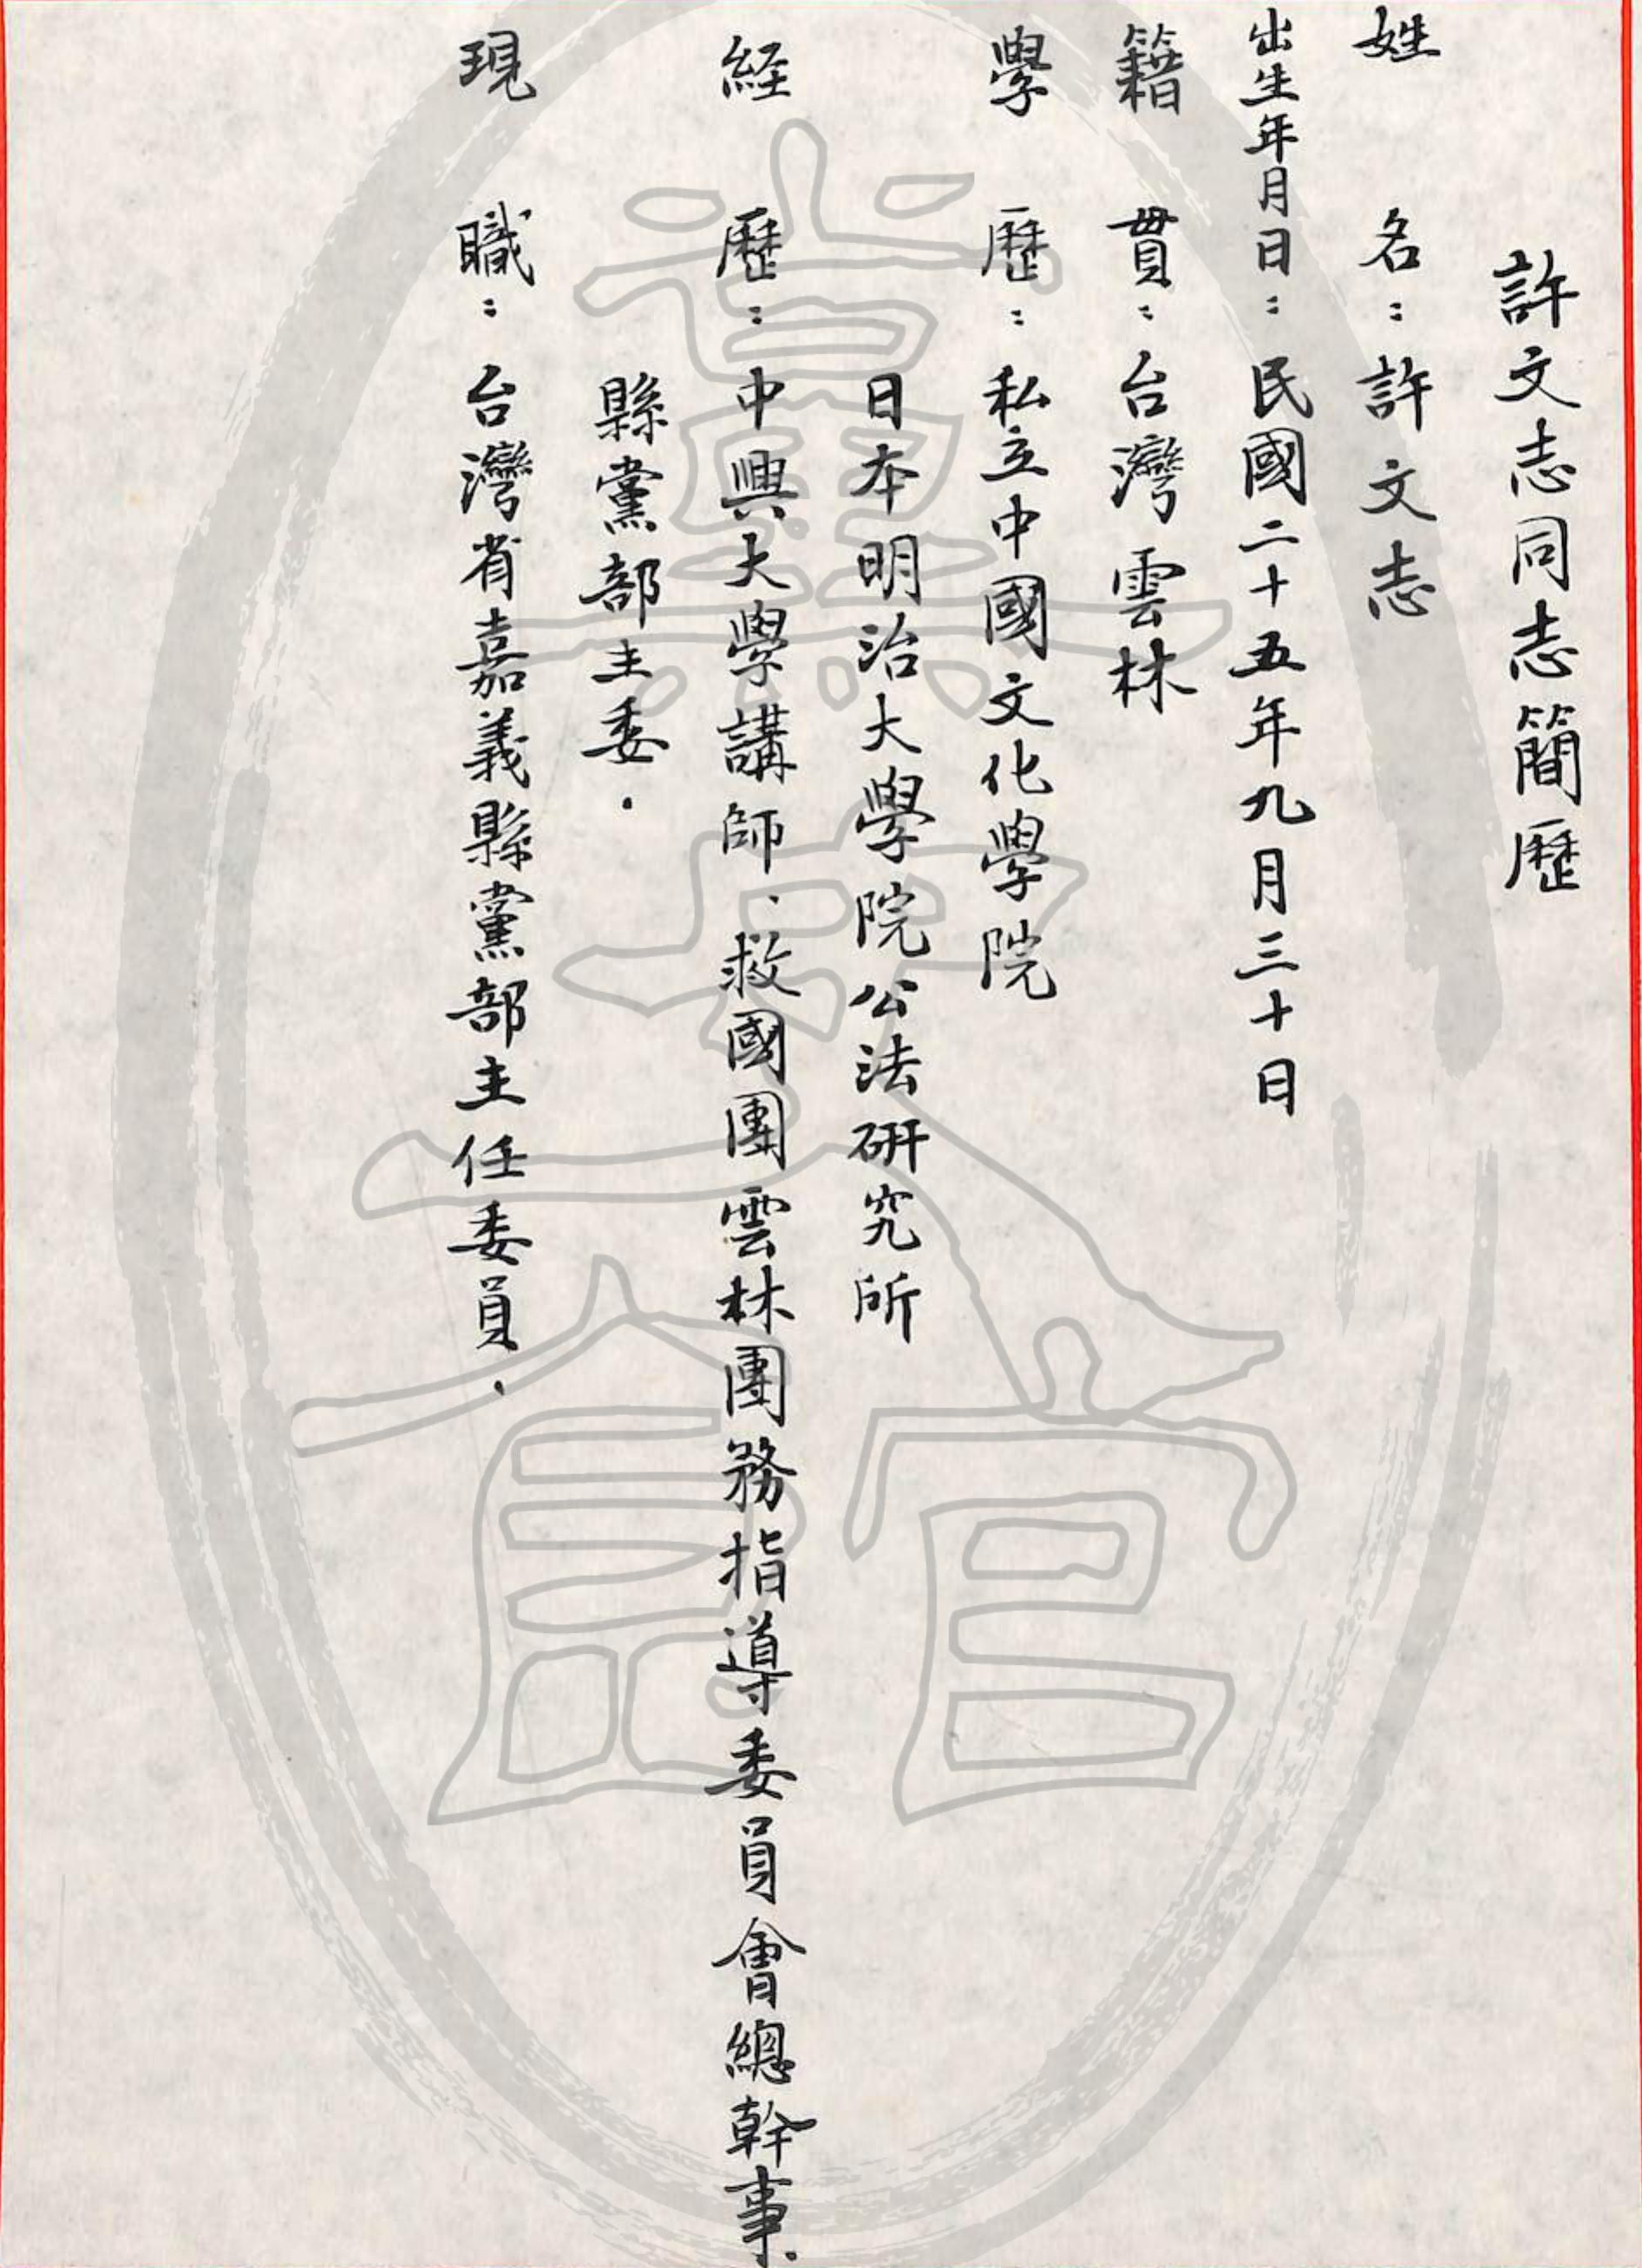 許文志同志簡歷
姓名：許文志
出生年月日：民國二十五年九月三十日
籍貫：台灣雲林
學歷：私立中國文化學院
日本明治大學院公法研究所
経歷：中興大學講師、救國團雲林團務指導委員會總幹事、
縣黨部主委．
現職：台灣省嘉義縣黨部主任委員．